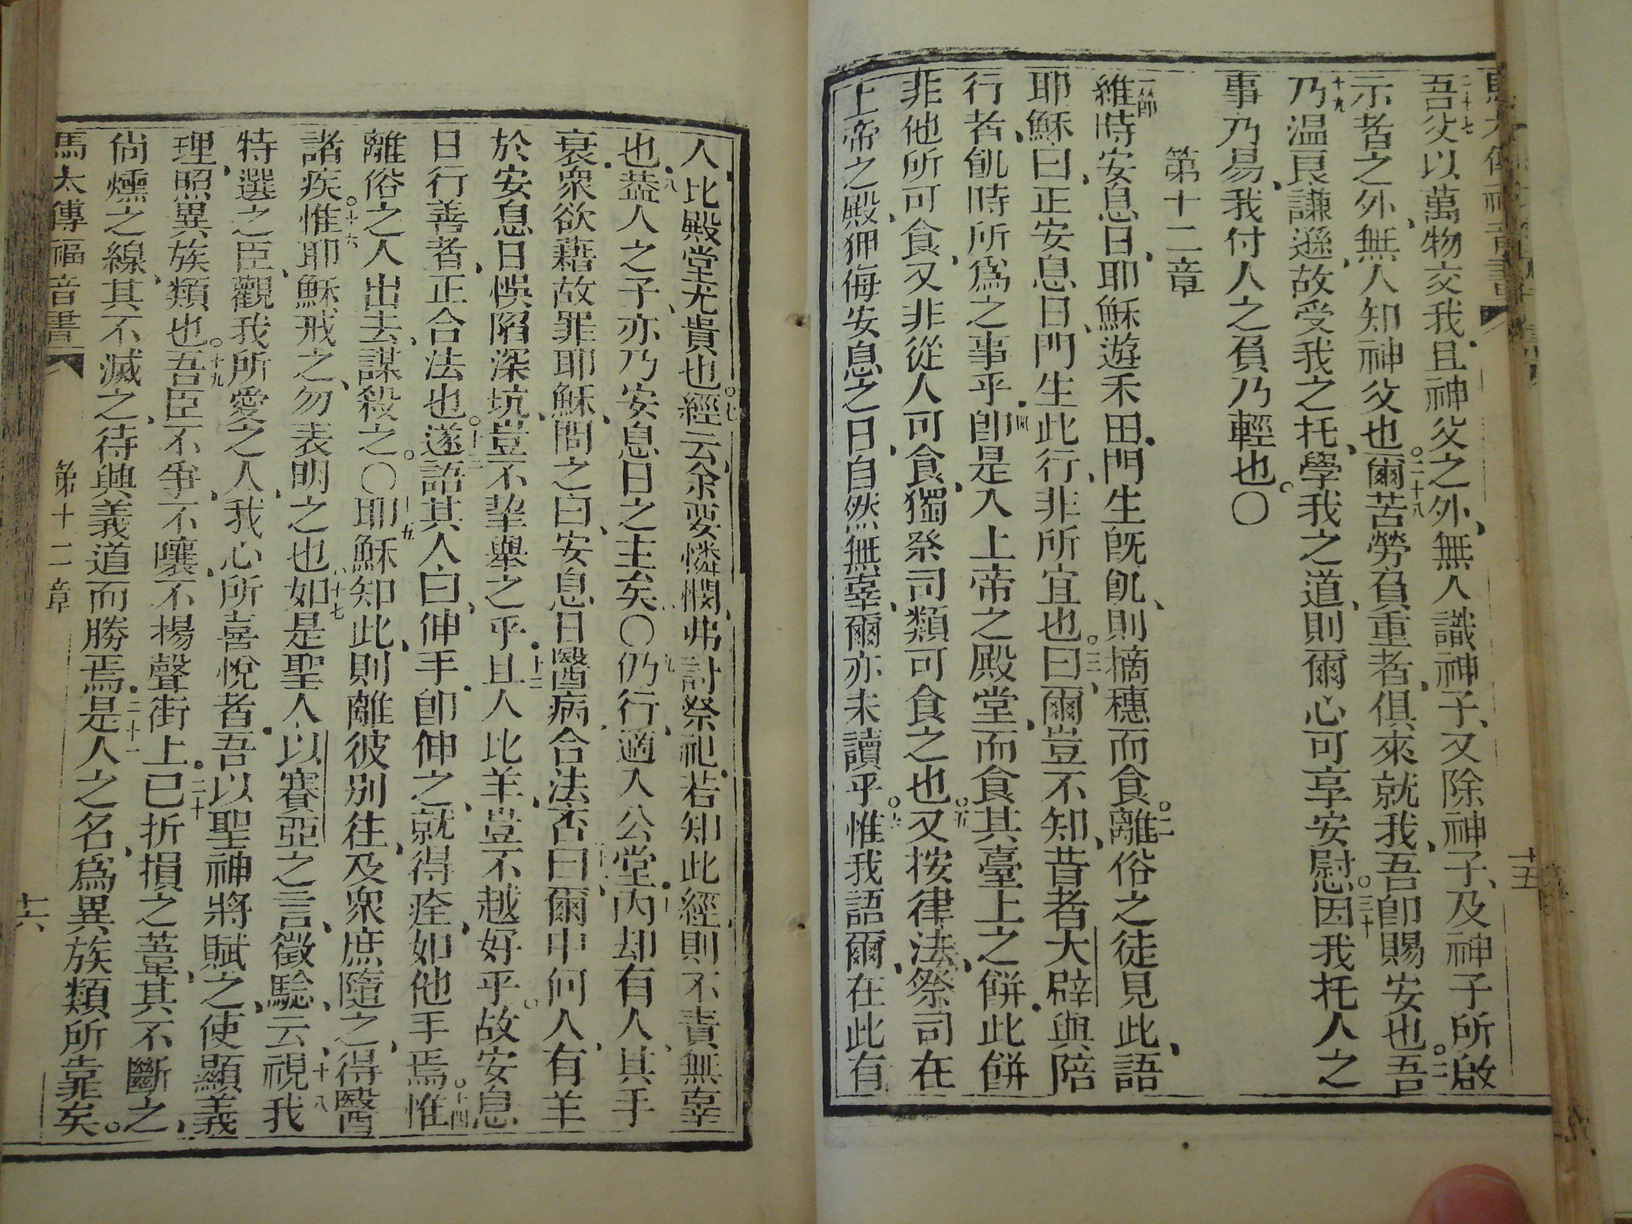 吾父以萬物交我且神父之外無人識神子又除神子及神子所啟
示者之外無人知神父也爾苦勞負重者俱來就我吾卽賜安也吾
乃温良謙遜故受我之托學我之道則爾心可享安慰因我托人之
事乃易我付人之負乃輕也〇
第十二章
維時安息日耶穌遊禾田門生旣飢則摘穗而食離俗之徒見此語
耶穌曰正安息日門生此行非所宜也曰爾豈不知昔者大辟與陪
行者飢時所爲之事乎卽是入上帝之殿堂而食其臺上之餅此餅
非他所可食又非從人可食獨祭司類可食之也又按律法祭司在
上帝之殿狎侮安息之日自然無辜爾亦未讀乎惟我語爾在此有
十五
人比殿堂尤貴也經云余要憐憫弗討祭祀若知此經則不責無辜
也葢人之子亦乃安息日之主矣〇仍行適入公堂內却有人其手
衰衆欲藉故罪耶穌問之曰安息日醫病合法否曰爾中何人有羊
於安息日悞陷深坑豈不拏舉之乎且人比羊豈不越好乎故安息
日行善者正合法也遂語其人曰伸手卽伸之就得痊如他手焉惟
離俗之人出去謀殺之〇耶穌知此則離彼別往及衆庶隨之得醫
諸疾惟耶穌戒之勿表明之也如是聖人以賽亞之言徵驗云視我
特選之臣觀我所愛之人我心所喜悅者吾以聖神將賦之使顯義
理照異族類也吾臣不爭不嚷不揚聲街上已折損之葦其不斷之
尙燻之線其不滅之待興義道而勝焉是人之名爲異族類所靠矣
馬太傳福音書 第十二章 十六